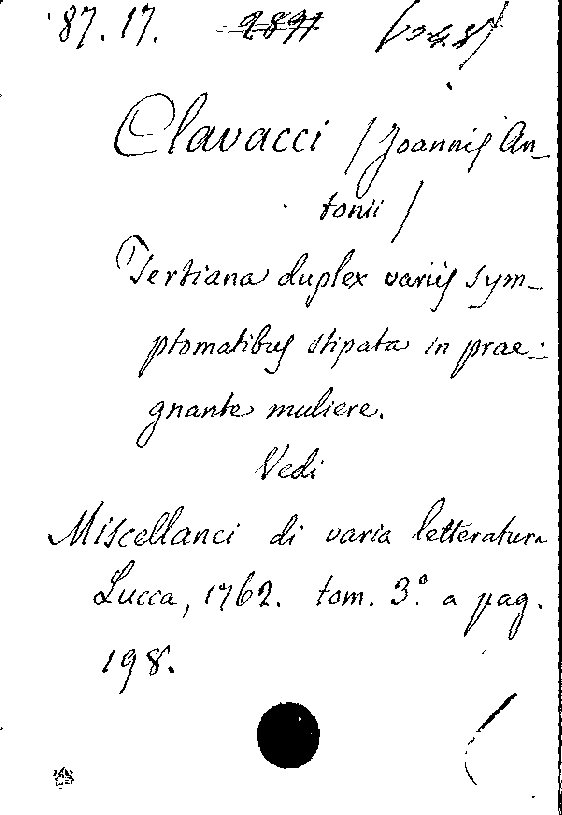 87.17. 2891
Clavacci / Joannis An-
tonii /
Tertiana duplex variis sym-
ptomatibus stipata in prae-
gnante muliere.
Vedi
Miscellanci di varia letteratura
Lucca, 1762. tom. 3.º a pag.
198.